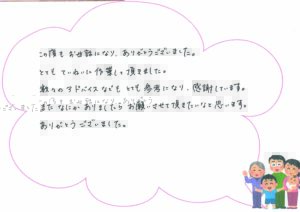 この度も お世話になり、ありがとうございました。
とても ていねいに 作業して頂きました。
数々の アドバイスなども とても 参考になり、感謝しています。
また なにか ありましたら お願いさせて頂きたいなと思います。
ありがとうございました。